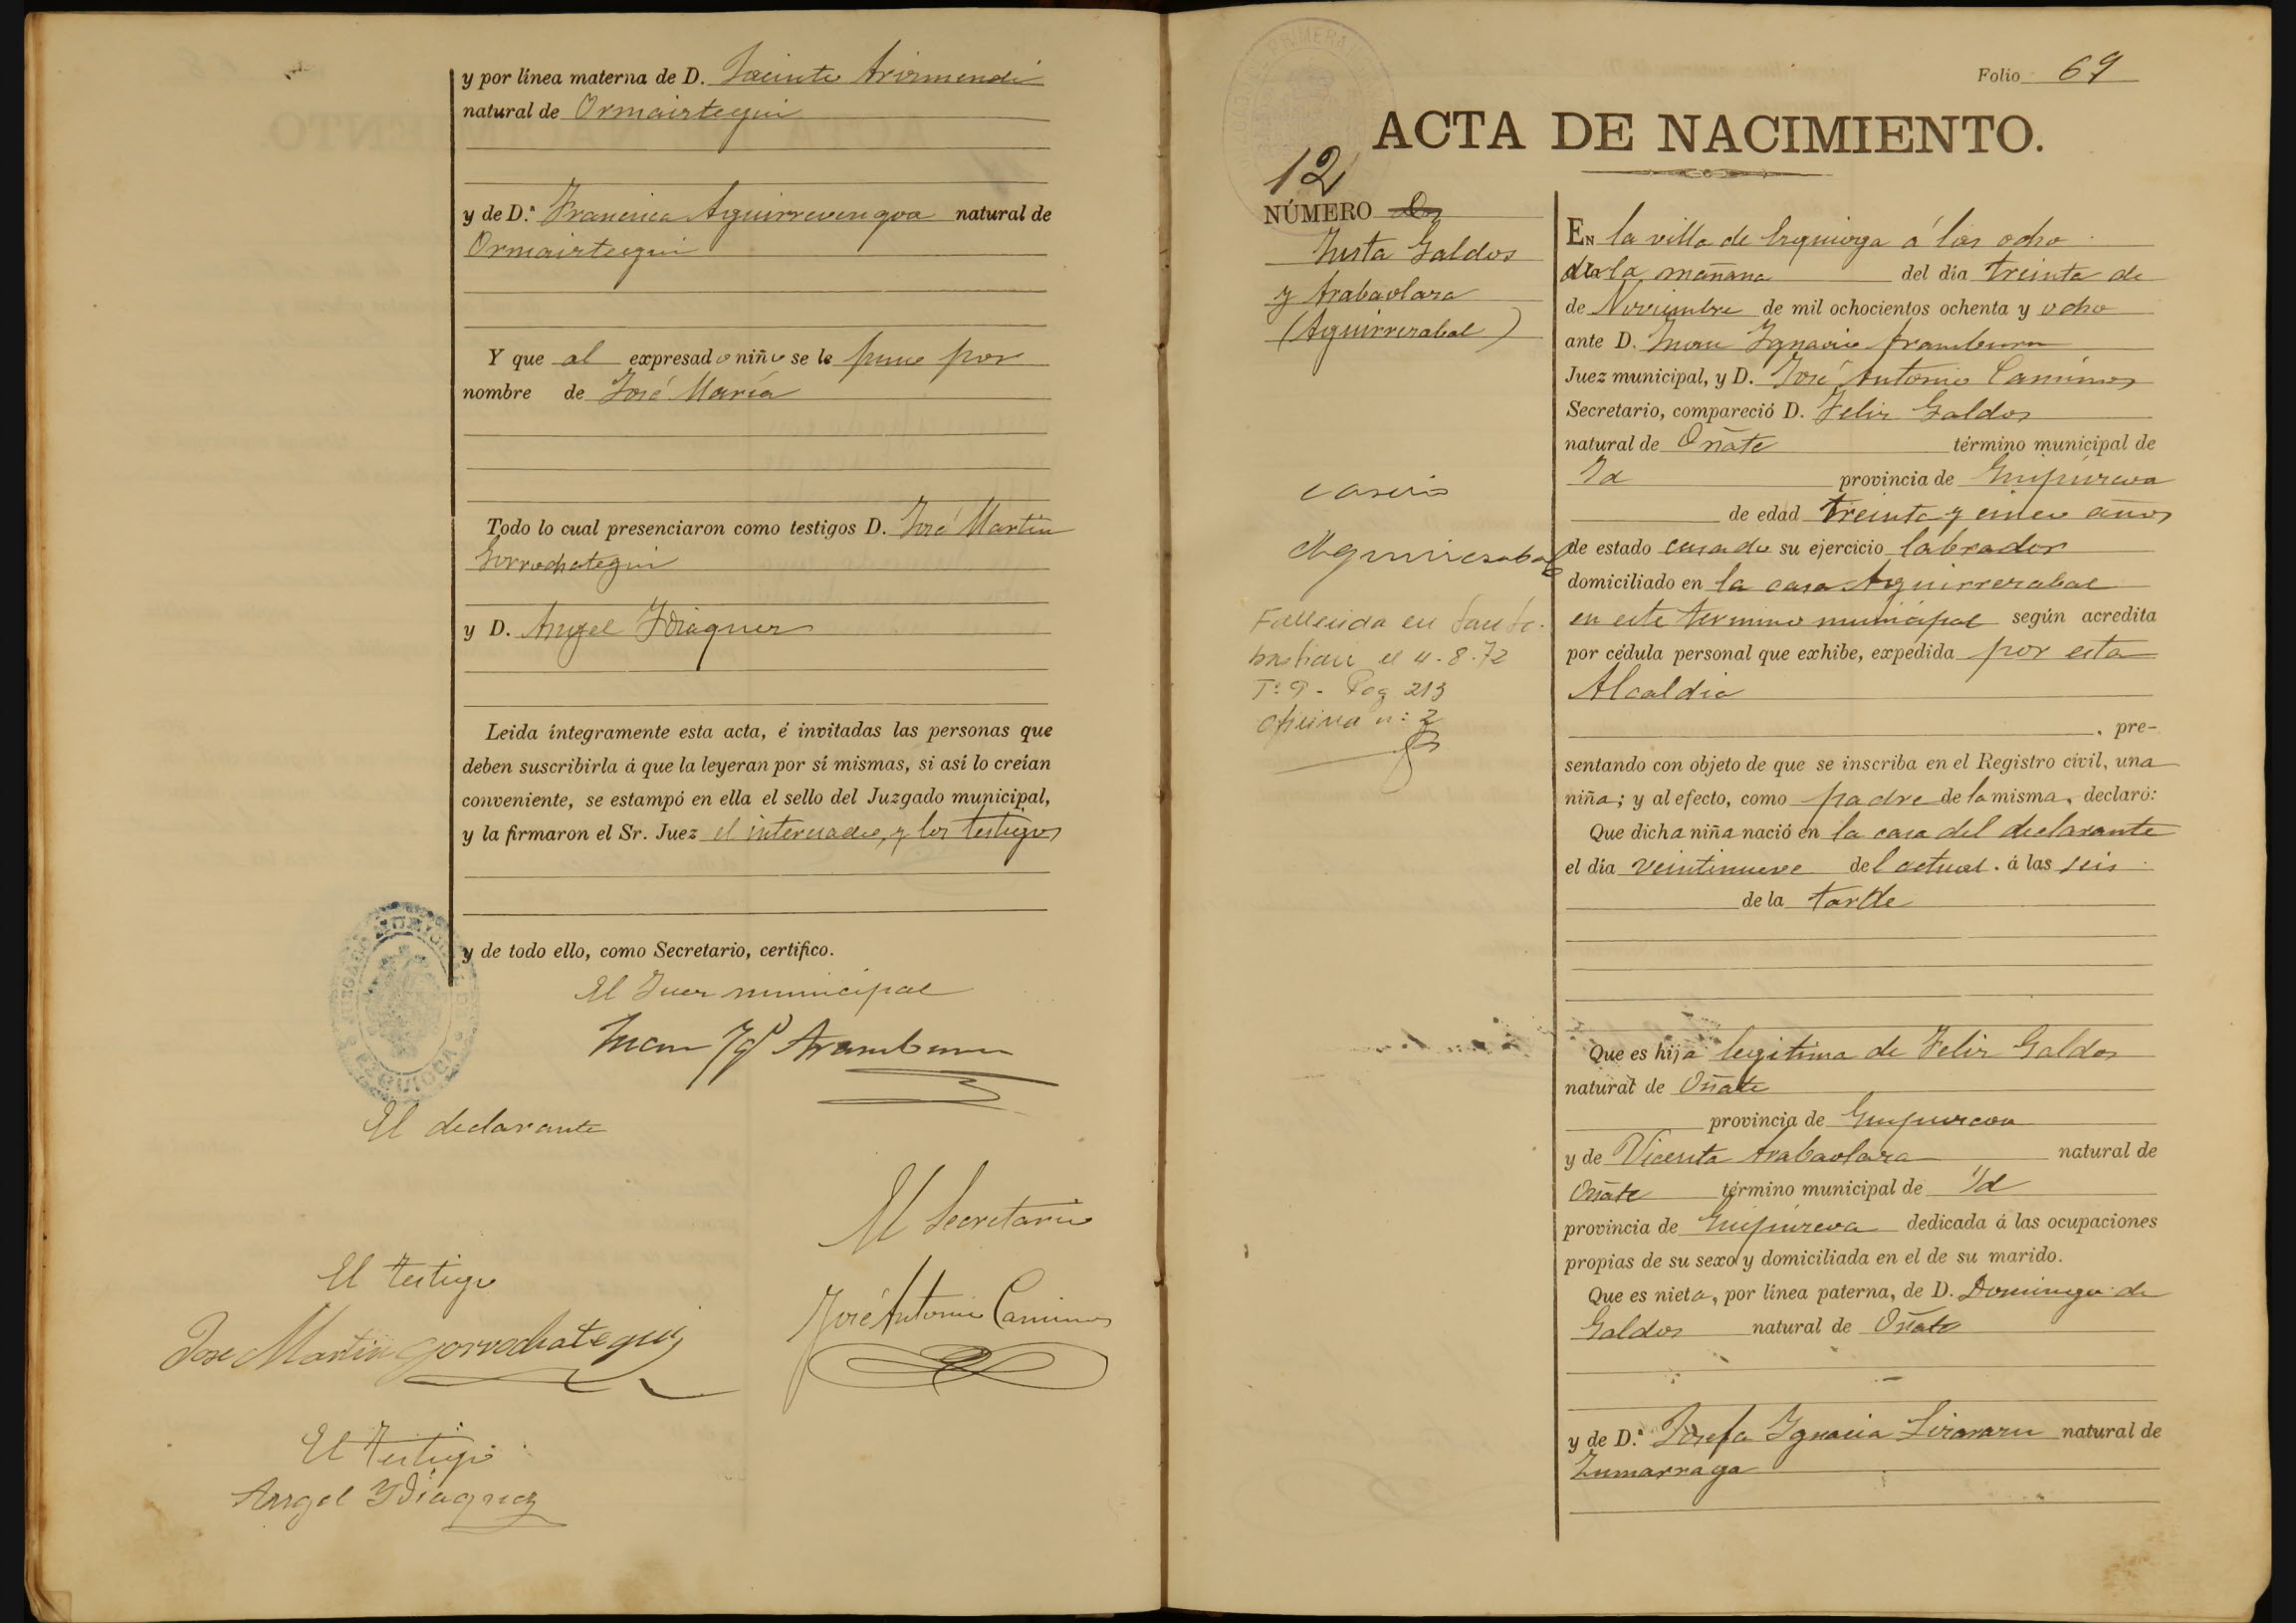 y por línea materna de D. Jacinto Arizmendi
natural de Ormaiztegui
y de D.ª Francisca Aguirrevengoa natural de
Ormaiztegui
Y que al expresado niño se le puso por
nombre de José María
Todo lo cual presenciaron como testigos D. José Martin
Gorrochategui
y D. Angel Ydiaquez
Leida íntegramente esta acta, é invitadas las personas que
deben suscribirla á que la leyeran por sí mismas, si así lo creían
conveniente, se estampó en ella el sello del Juzgado municipal,
y la firmaron el Sr. Juez el interesado, y los testigos
y de todo ello, como Secretario, certifico.
El Juez municipal
Juan Ygº Aramburu
El declarante
El Secretario
José Antonio Caminos
El testigo
Jose Martin Gorrochategui
El Testigo
Angel Ydiaquez
Folio 69
ACTA DE NACIMIENTO.
12
NÚMERO
Justa Galdos
y Arabaolaza
(Aguirrezabal)
caserio
Aguirrezabal
Fallecida en San Se-
bastian el 4-8-72
Tº 9 - Pag 213
oficina nº 2
EN la villa de Ezquioga á las ocho
de la mañana del día treinta de
de Noviembre de mil ochocientos ochenta y ocho
ante D. Juan Ygnacio Aramburu
Juez municipal, y D. José Antonio Caminos
Secretario, compareció D. Felix Galdos
natural de Oñate término municipal de
Id provincia de Guipúzcoa
de edad treinta y cinco años
de estado casado su ejercicio labrador
domiciliado en la casa Aguirrezabal
en este termino municipal según acredita
por cédula personal que exhibe, expedida por esta
Alcaldia
, pre-
sentando con objeto de que se inscriba en el Registro civil, una
niña; y al efecto, como padre de la misma, declaró:
Que dicha niña nació en la casa del declarante
el día veintinueve del actual. á las seis
de la tarde
Que es hija legitima de Felix Galdos
natural de Oñate
provincia de Guipuzcoa
y de Vicenta Arabaolaza natural de
Oñate término municipal de Id
provincia de Guipúzcoa dedicada á las ocupaciones
propias de su sexo y domiciliada en el de su marido.
Que es nieta, por línea paterna, de D. Domingo de
Galdos natural de Oñate
y de D.ª Josefa Ygnacia natural de
Zumarraga